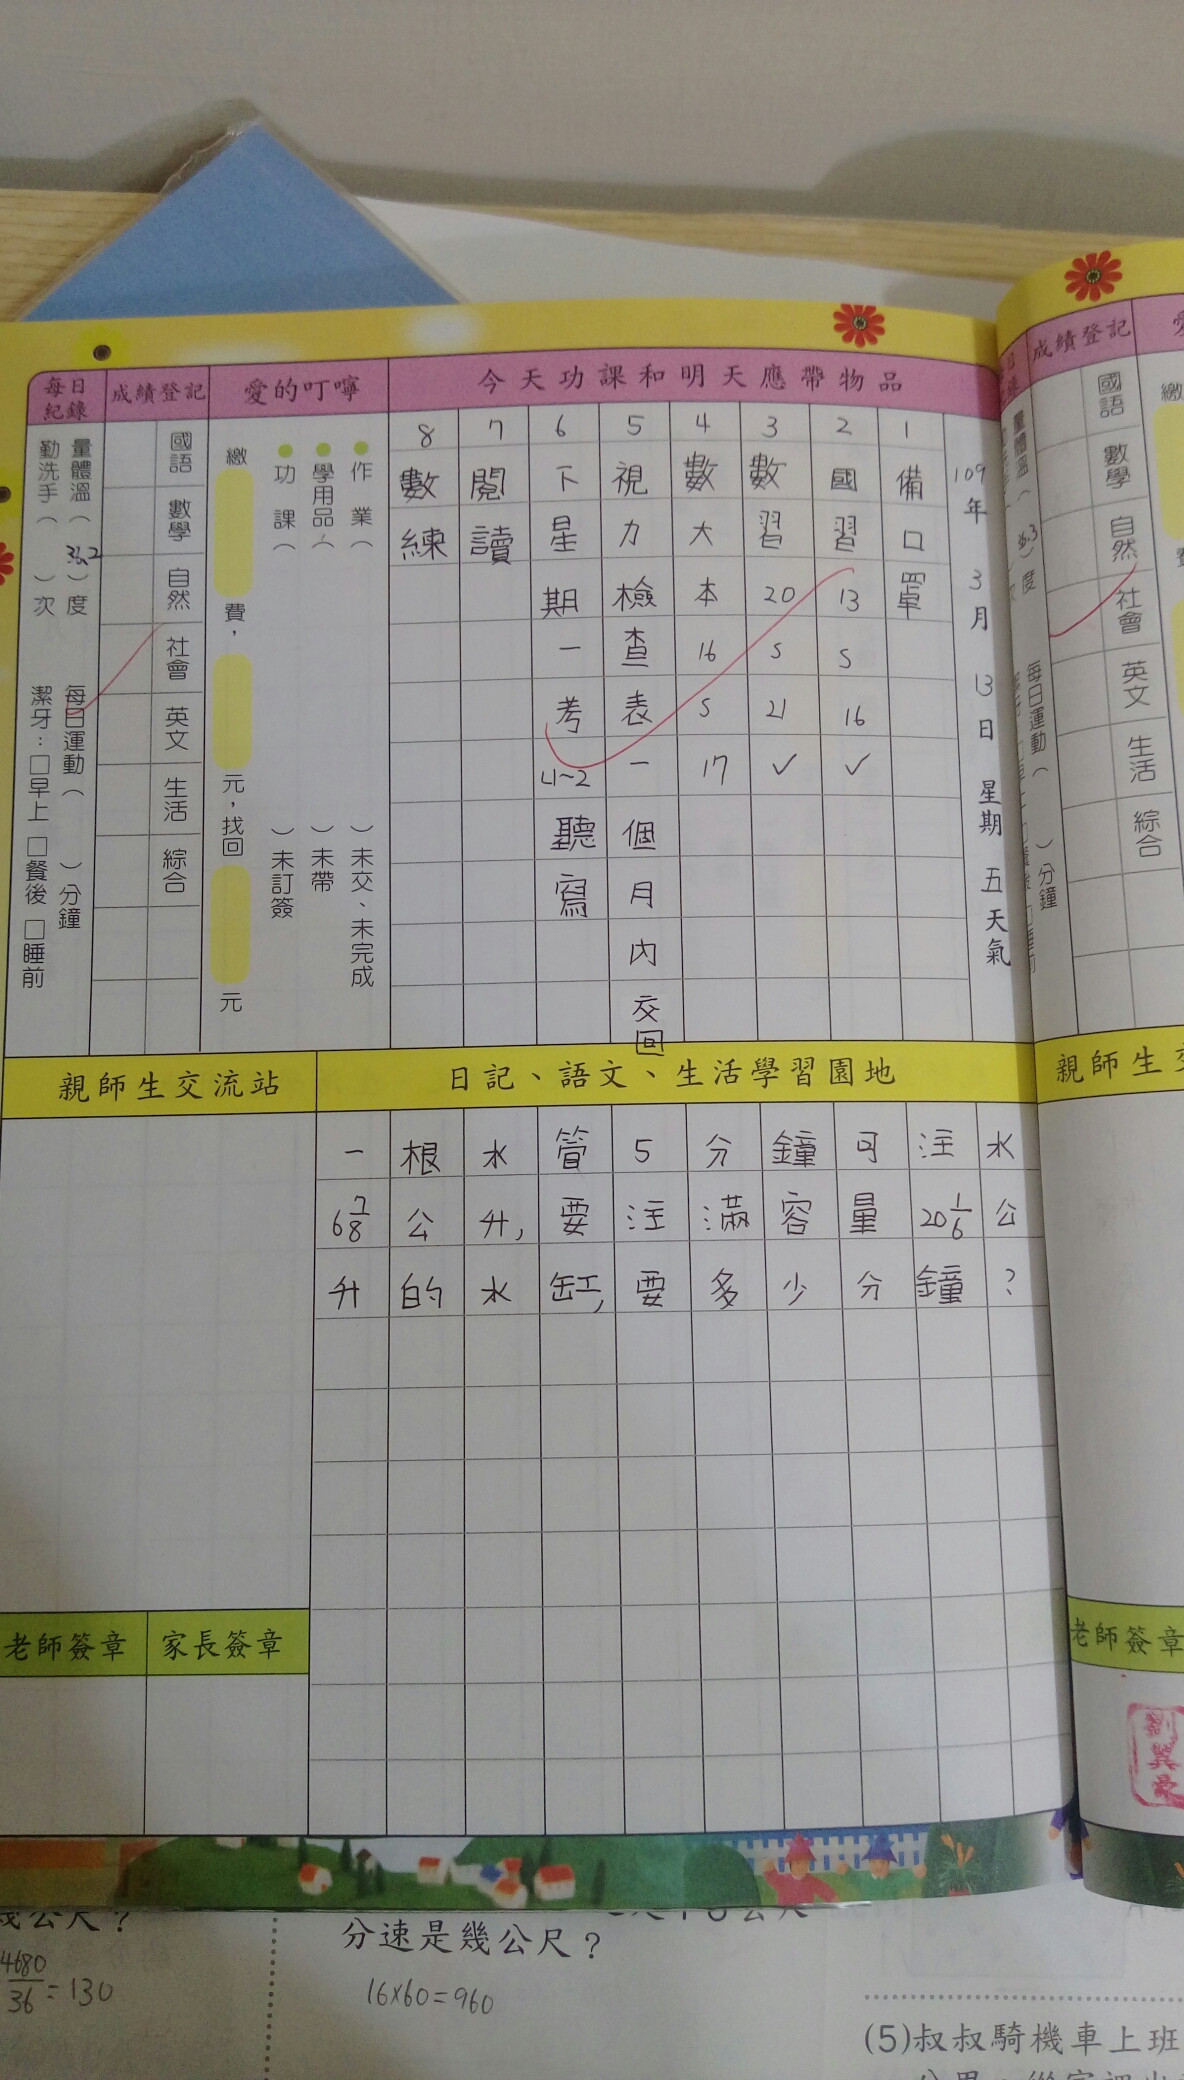 今天功課和明天應帶物品
109年3月13日 星期五 天氣
1 備口罩
2 國習13 S 16 ✓
3 數習20 S 21 ✓
4 數大本16 S 17
5 視力檢查表一個月內交回
6 下星期一考L1~2聽寫
7 閱讀
8 數練
愛的叮嚀
●作業（ ）未交、未完成
●學用品（ ）未帶
●功課（ ）未訂簽
繳 費，元，找回 元
成績登記
國語
數學
自然
社會
英文
生活
綜合
每日紀錄
量體溫（36.2）度 每日運動（ ）分鐘
勤洗手（ ）次 潔牙：□早上□餐後□睡前
日記、語文、生活學習園地
一根水管5分鐘可注水
6 7/8公升,要注滿容量20 1/6公
升的水缸,要多少分鐘?
親師生交流站
老師簽章
家長簽章
成績登記
國語
數學
自然
社會
英文
生活
綜合
量體溫（36.3）度
每日運動（ ）分鐘
繳
親師生交
老師簽章
幾公尺？
4680/36=130
分速是幾公尺？
16×60=960
(5)叔叔騎機車上班